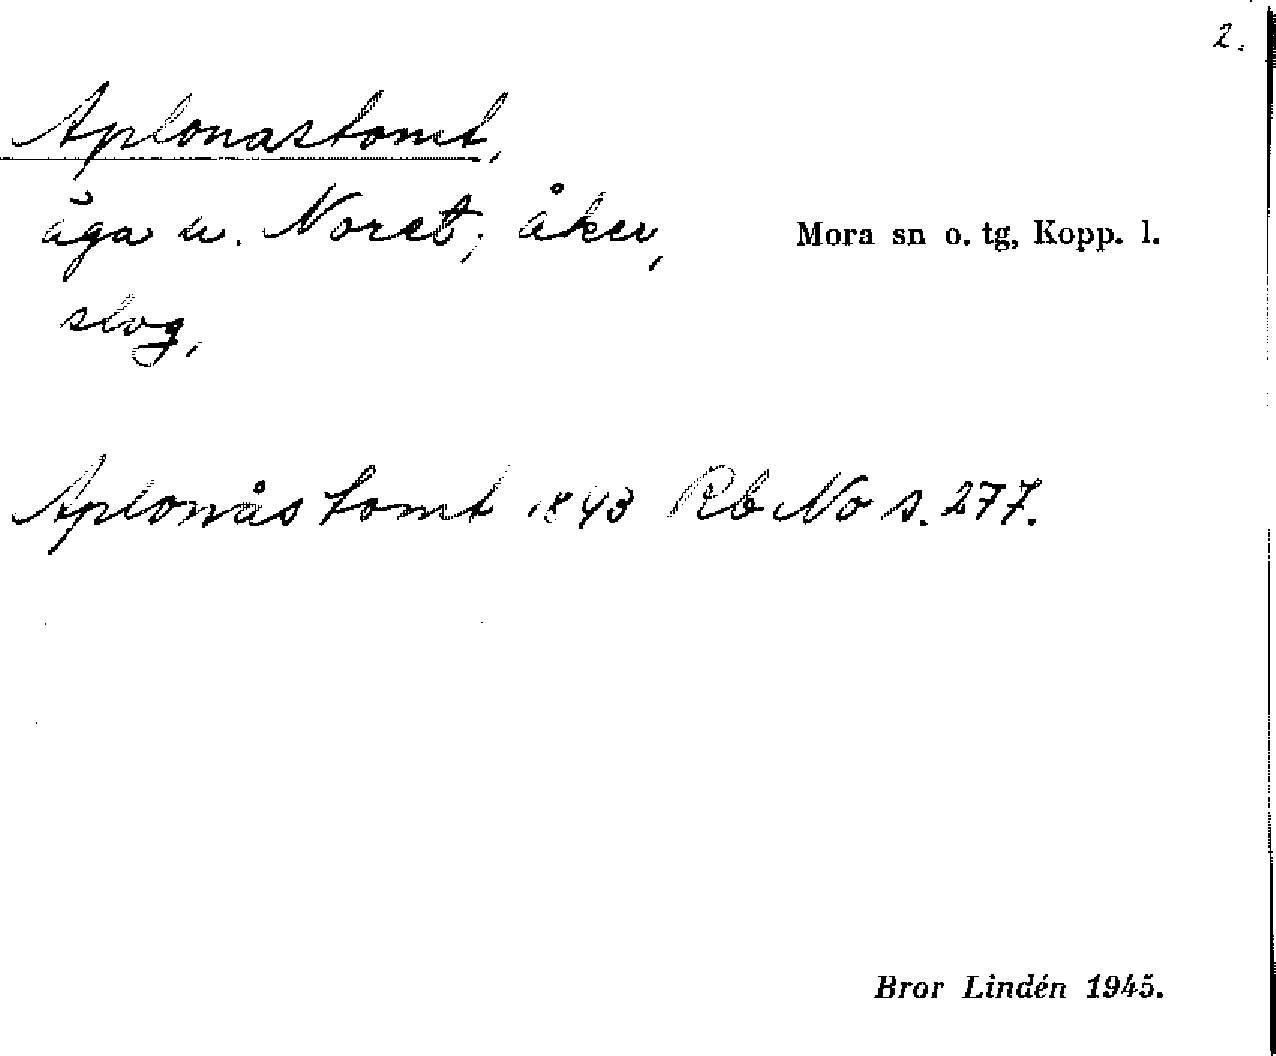 2.
Aplonastomt,
äga u. Noret; åker, Mora sn o. tg, Kopp. l.
slog,
Aplonås tomt 1843 Rb No s. 277.
Bror Lindén 1945.